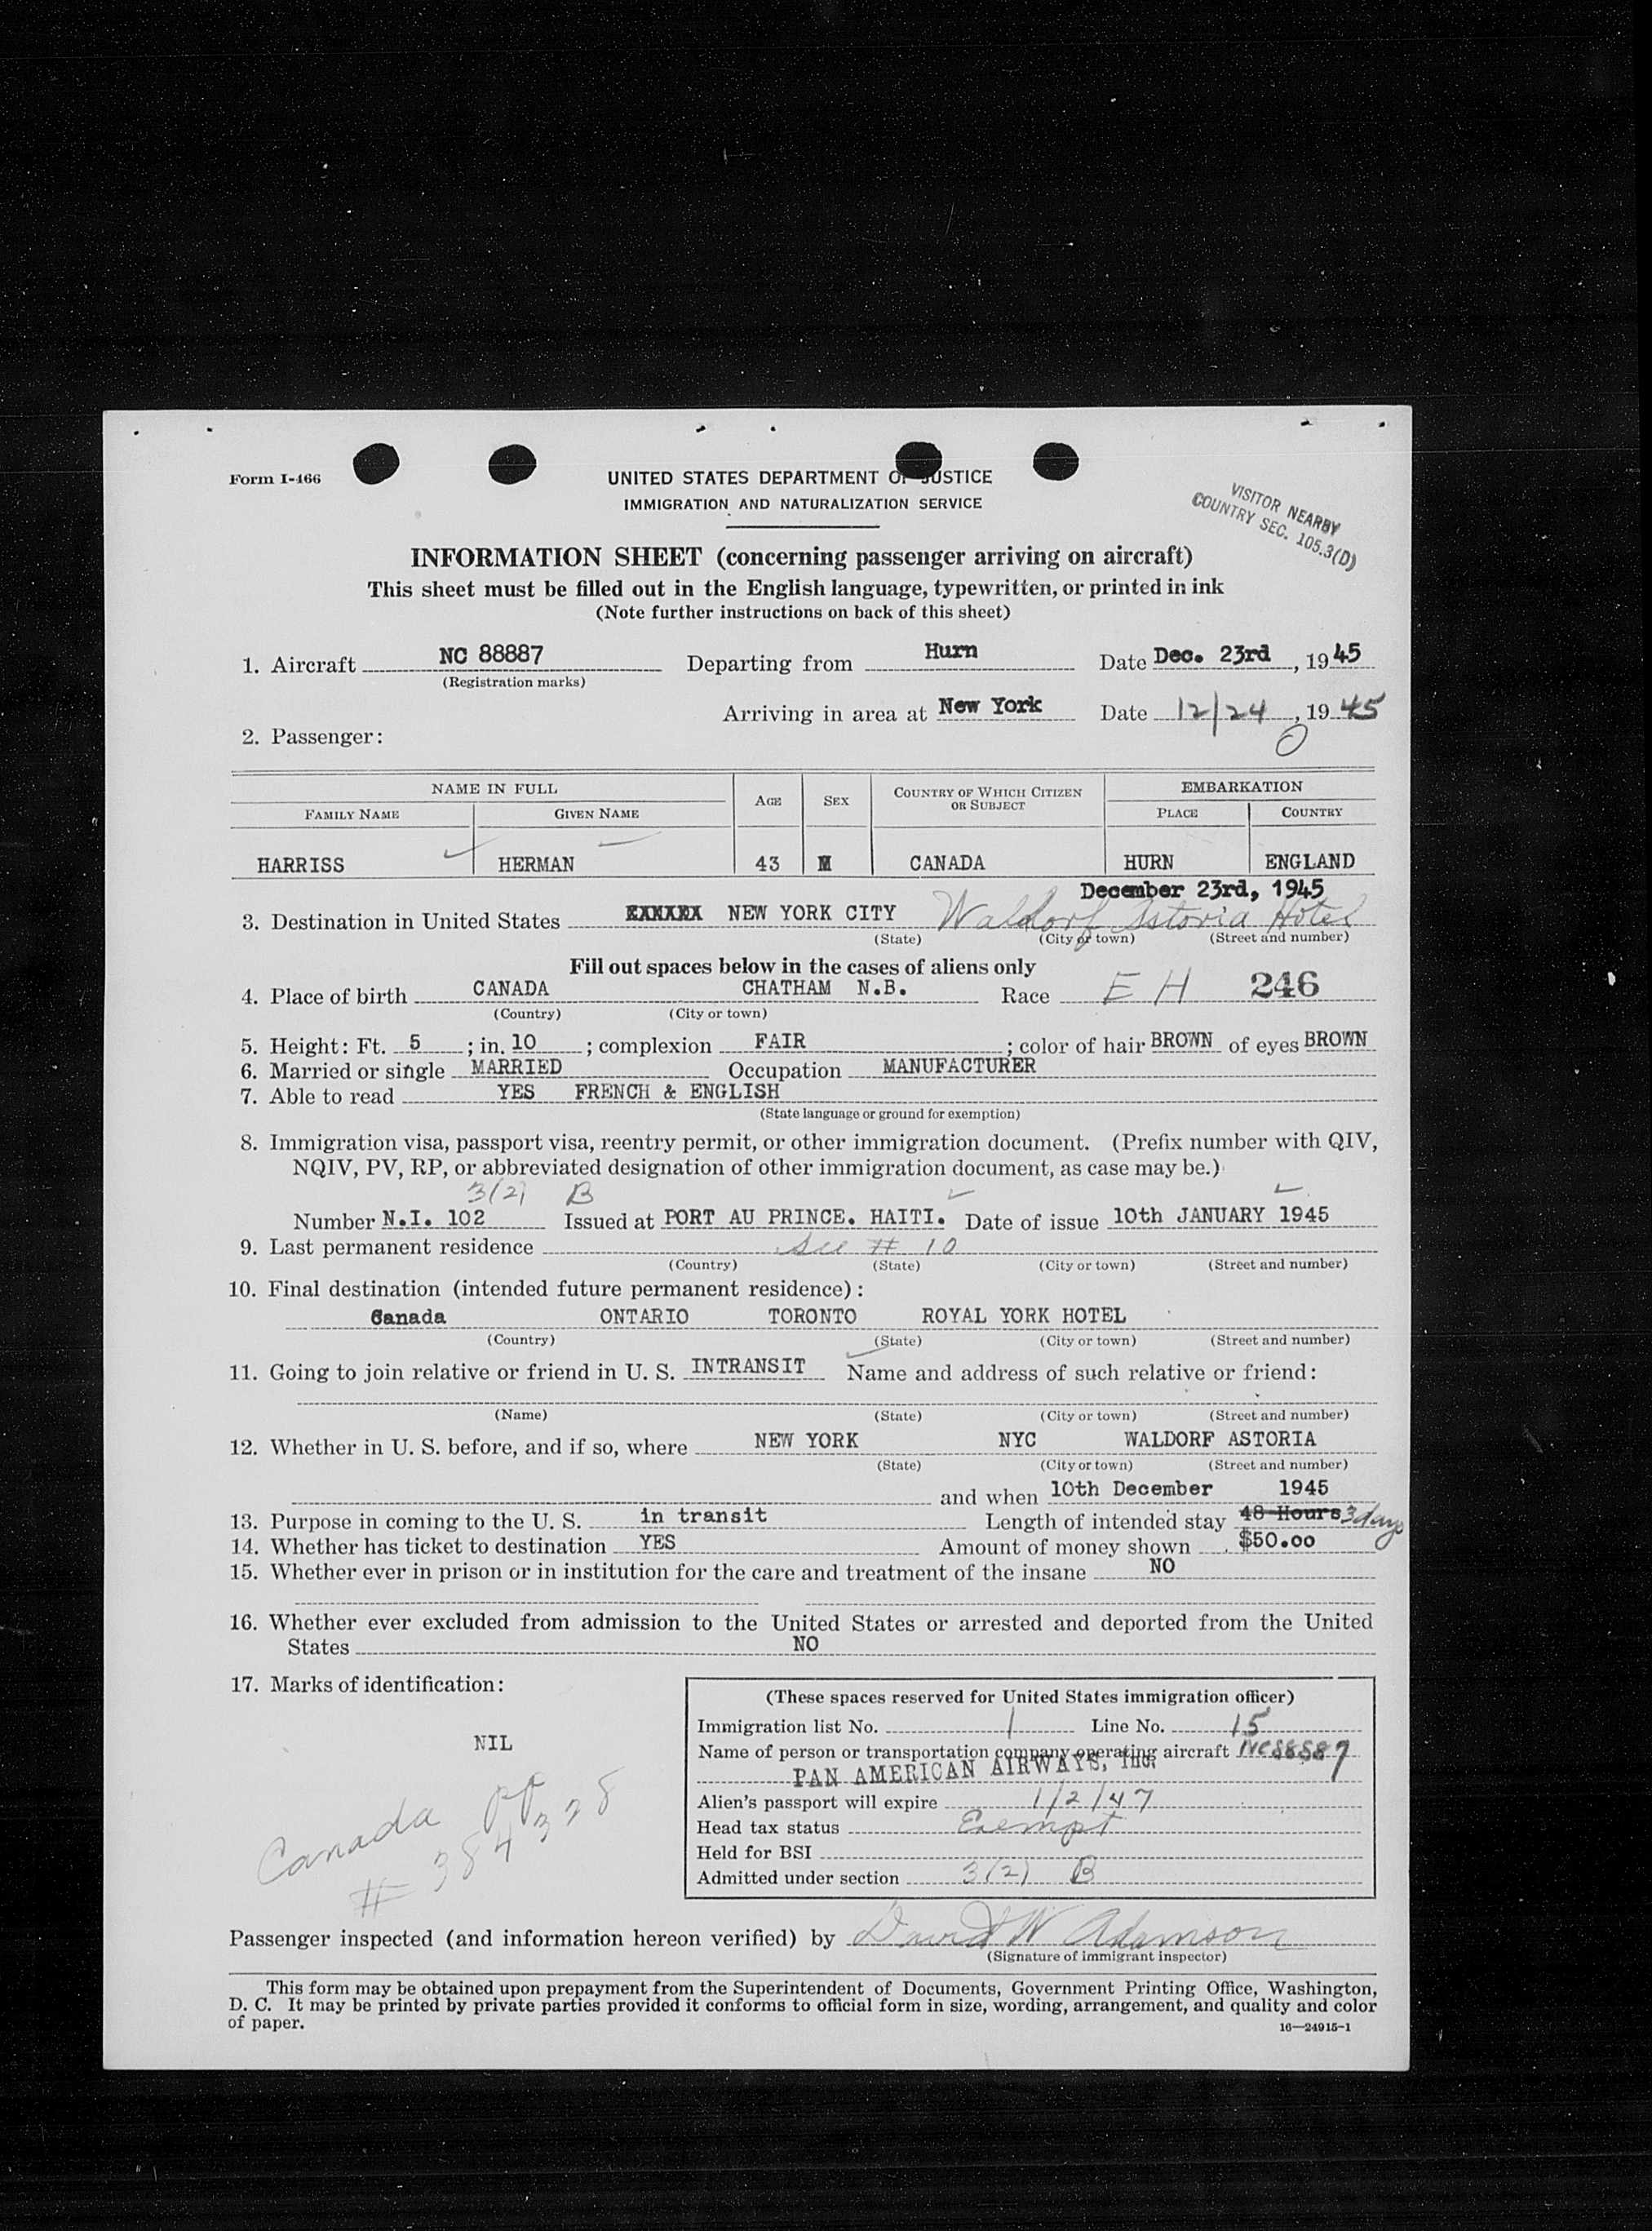 Form I-466
UNITED STATES DEPARTMENT OF JUSTICE
IMMIGRATION AND NATURALIZATION SERVICE
VISITOR NEARBY
COUNTRY SEC. 105.3(D)
INFORMATION SHEET (concerning passenger arriving on aircraft)
This sheet must be filled out in the English language, typewritten, or printed in ink
(Note further instructions on back of this sheet)
1. Aircraft NC 88887 Departing from Hurn Date Dec. 23rd, 1945
(Registration marks)
Arriving in area at New York Date 12/24, 1945
2. Passenger:
NAME IN FULL AGE SEX COUNTRY OF WHICH CITIZEN OR SUBJECT EMBARKATION
FAMILY NAME GIVEN NAME PLACE COUNTRY
HARRISS HERMAN 43 M CANADA HURN ENGLAND
December 23rd, 1945
3. Destination in United States NEW YORK CITY Waldorf Astoria Hotel
(State) (City or town) (Street and number)
Fill out spaces below in the cases of aliens only
4. Place of birth CANADA CHATHAM N.B. Race E H 246
(Country) (City or town)
5. Height: Ft. 5; in. 10; complexion FAIR; color of hair BROWN of eyes BROWN
6. Married or single MARRIED Occupation MANUFACTURER
7. Able to read YES FRENCH & ENGLISH
(State language or ground for exemption)
8. Immigration visa, passport visa, reentry permit, or other immigration document. (Prefix number with QIV,
NQIV, PV, RP, or abbreviated designation of other immigration document, as case may be.)
3(2) B
Number N.I. 102 Issued at PORT AU PRINCE. HAITI. Date of issue 10th JANUARY 1945
9. Last permanent residence See # 10
(Country) (State) (City or town) (Street and number)
10. Final destination (intended future permanent residence):
Canada ONTARIO TORONTO ROYAL YORK HOTEL
(Country) (State) (City or town) (Street and number)
11. Going to join relative or friend in U. S. INTRANSIT Name and address of such relative or friend:
(Name) (State) (City or town) (Street and number)
12. Whether in U. S. before, and if so, where NEW YORK NYC WALDORF ASTORIA
(State) (City or town) (Street and number)
and when 10th December 1945
13. Purpose in coming to the U. S. in transit Length of intended stay 48 Hours 3 days
14. Whether has ticket to destination YES Amount of money shown $50.00
15. Whether ever in prison or in institution for the care and treatment of the insane NO
16. Whether ever excluded from admission to the United States or arrested and deported from the United
States NO
17. Marks of identification:
NIL
Canada PP
# 384328
(These spaces reserved for United States immigration officer)
Immigration list No. 1 Line No. 15
Name of person or transportation company operating aircraft NC88887
PAN AMERICAN AIRWAYS, INC.
Alien's passport will expire 1/2/47
Head tax status Exempt
Held for BSI
Admitted under section 3(2) B
Passenger inspected (and information hereon verified) by David W Adamson
(Signature of immigrant inspector)
This form may be obtained upon prepayment from the Superintendent of Documents, Government Printing Office, Washington,
D. C. It may be printed by private parties provided it conforms to official form in size, wording, arrangement, and quality and color
of paper.
16—24915-1